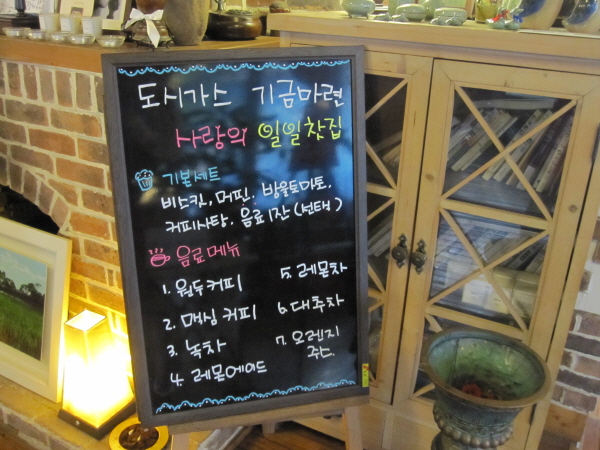 도시가스 기금마련
사랑의 일일찻집
기본세트
비스킷, 머핀, 방울토마토,
커피사탕, 음료1잔 (선택)
음료메뉴
1. 원두커피
2. 맥심 커피
3. 녹차
4. 레몬에이드
5. 레몬차
6. 대추차
7. 오렌지
주스